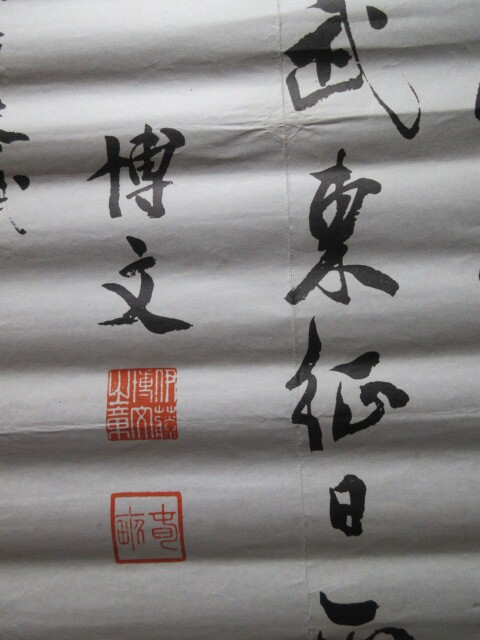 武東征日
博文
伊藤博文之章
春畝